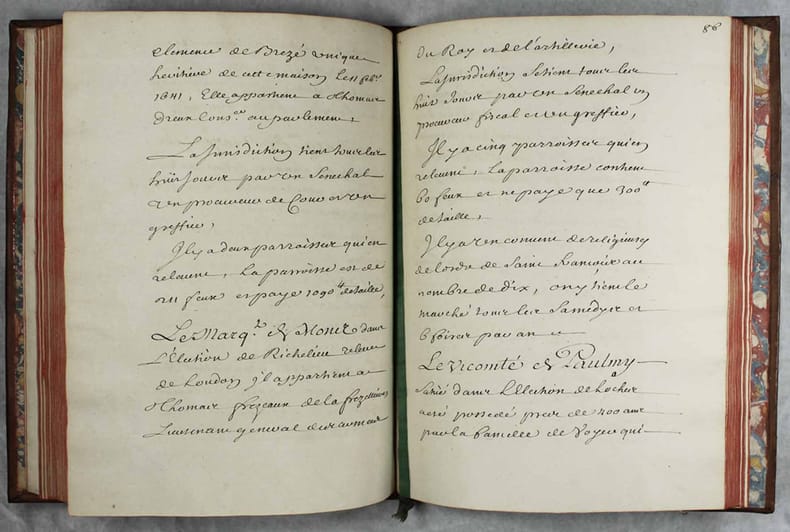 clemence de Brezé unique
heritiere de cette maison le 11 febr
1641, Elle appartient a Thomas
dreux Conser au parlement,
La Jurisdiction tient tour les
huit Jours par un Senechal
un procureur de Cour et un
greffier,
Il y a deux parroisses qui en
relevent, La parroisse est de
feux et paye 1090tt de taille,
Le Marq.t de Monts dans
L'Election de Richelieu releve
de Loudon il appartient a
Thomas frezeau de la frezeliere
Lieutenant general des armées
88
Du Roy et de l'artillerie,
La Jurisdiction se tient tous les
huit Jours par un Senechal un
procureur fiscal et un greffier,
Il y a cinq parroisses qui en
relevent, La parroisse contient
60 feux et ne paye que 300tt
de taille,
Il y a un convent de religieuses
de l'ordre de Saint francois au
nombre de dix, on y tient le
marché tous les Samedys et
6 foires par an
Le Vicomté de Paulmy
Situé dans L'Election de Loches
a esté possedé pres de 400 ans
par la famille de Voyer qui